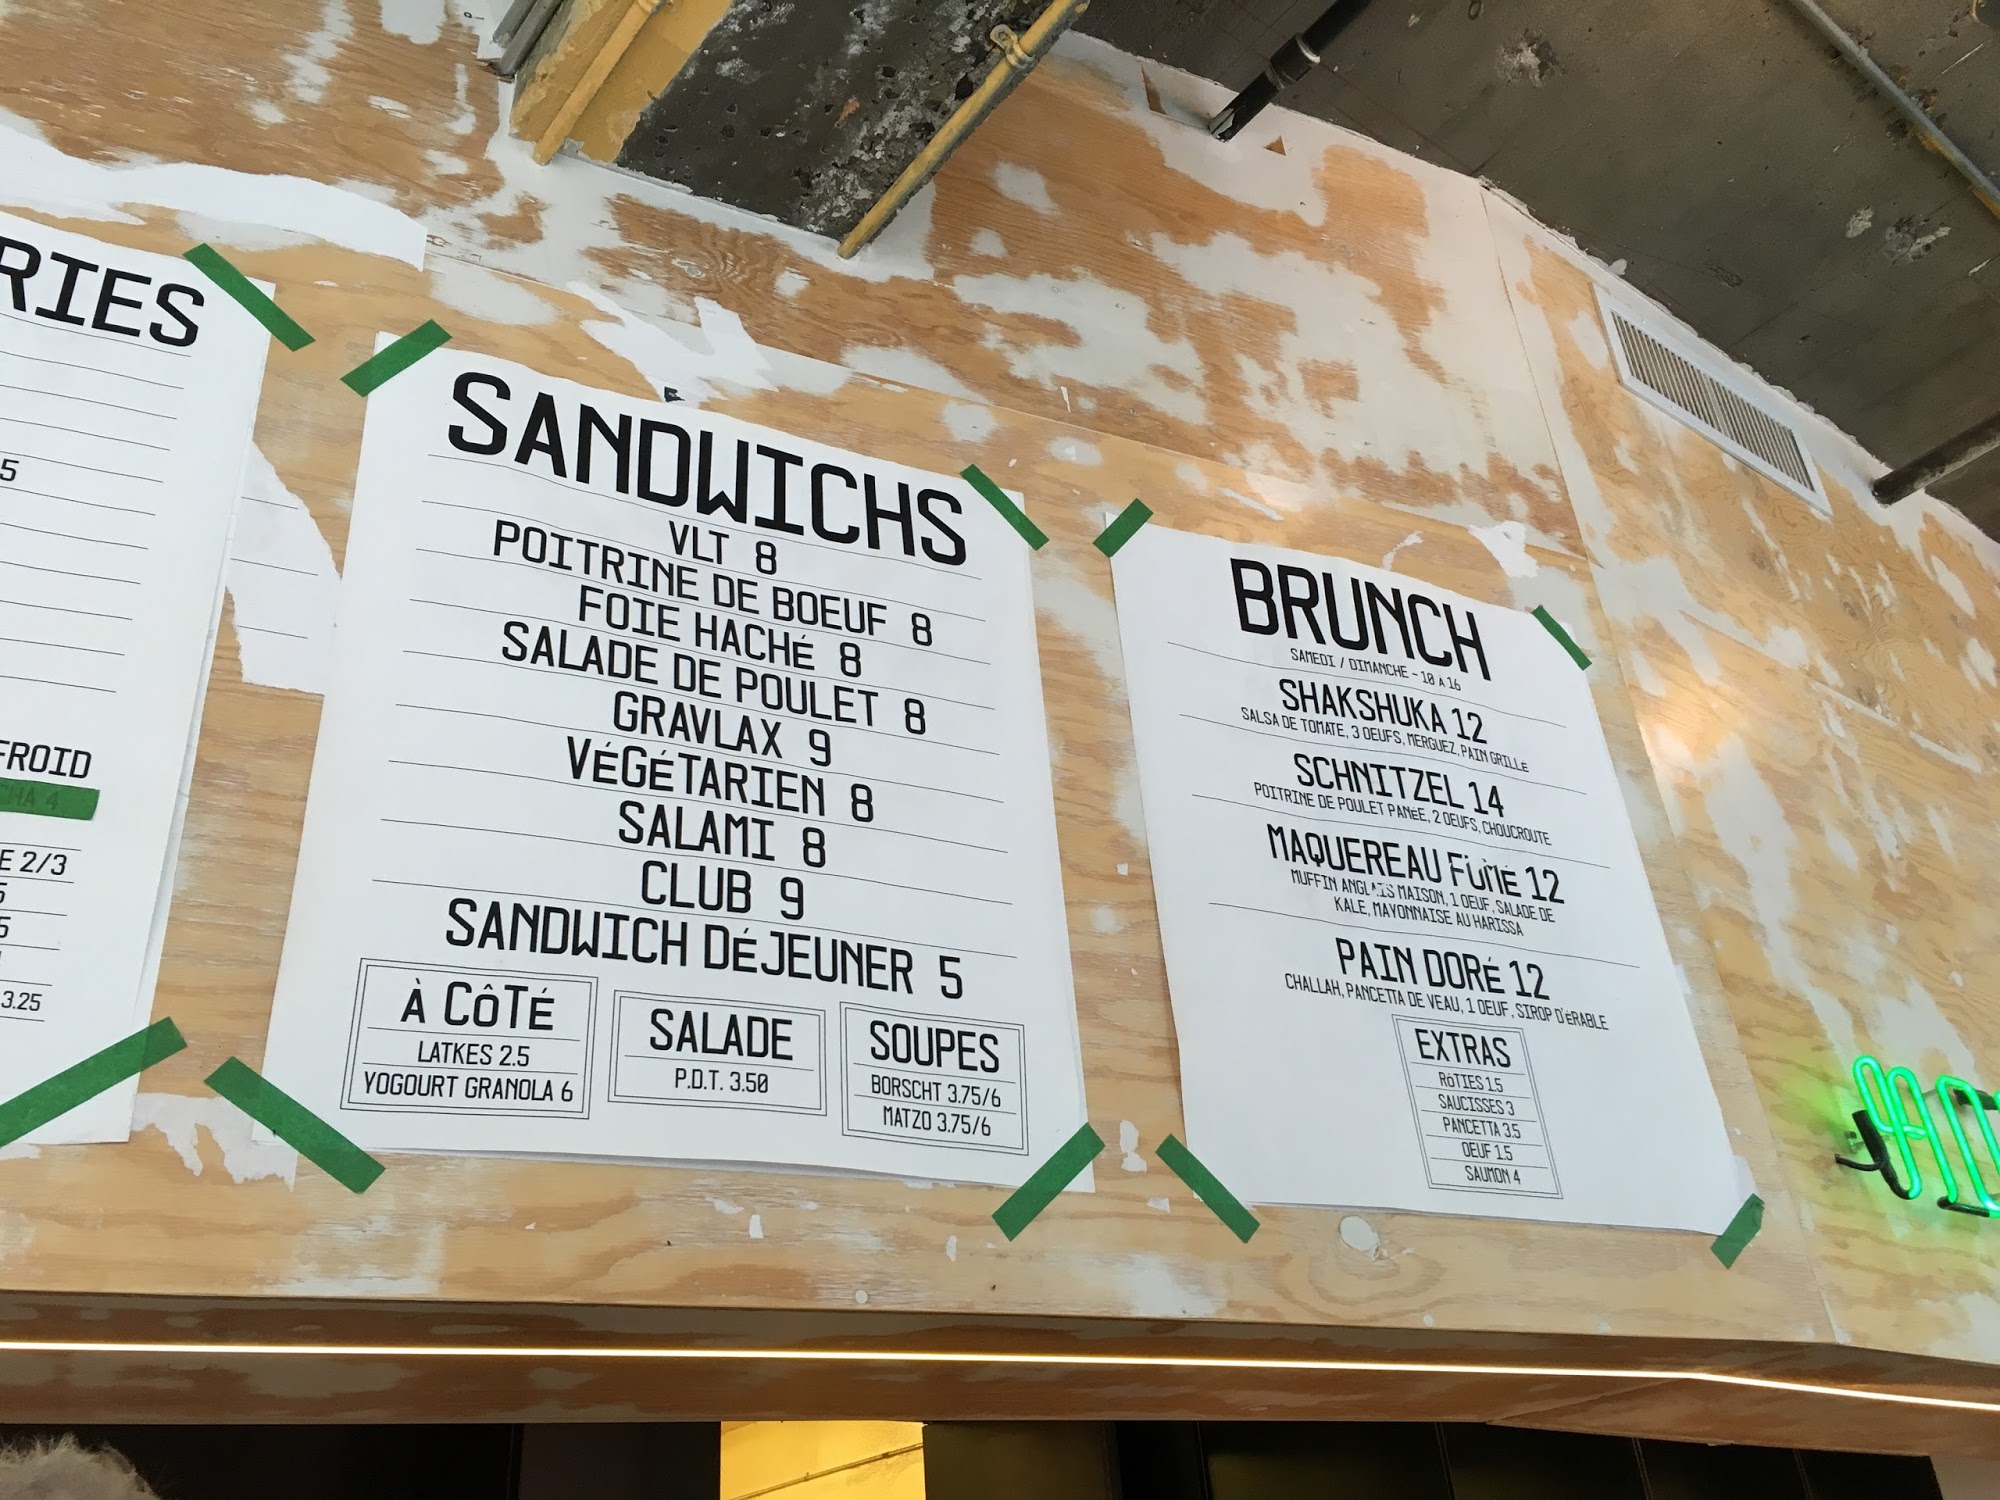 RIES
5
FROID
HA 4
E 2/3
5
5
3.25
SANDWICHS
VLT 8
POITRINE DE BOEUF 8
FOIE HACHÉ 8
SALADE DE POULET 8
GRAVLAX 9
VÉGÉTARIEN 8
SALAMI 8
CLUB 9
SANDWICH DÉJEUNER 5
À CÔTÉ
LATKES 2.5
YOGOURT GRANOLA 6
SALADE
P.D.T. 3.50
SOUPES
BORSCHT 3.75/6
MATZO 3.75/6
BRUNCH
SAMEDI / DIMANCHE - 10 À 16
SHAKSHUKA 12
SALSA DE TOMATE, 3 OEUFS, MERGUEZ, PAIN GRILLE
SCHNITZEL 14
POITRINE DE POULET PANÉE, 2 OEUFS, CHOUCROUTE
MAQUEREAU FUMÉ 12
MUFFIN ANGLAIS MAISON, 1 OEUF, SALADE DE
KALE, MAYONNAISE AU HARISSA
PAIN DORÉ 12
CHALLAH, PANCETTA DE VEAU, 1 OEUF, SIROP D'ÉRABLE
EXTRAS
RÔTIES 1.5
SAUCISSES 3
PANCETTA 3.5
OEUF 1.5
SAUMON 4